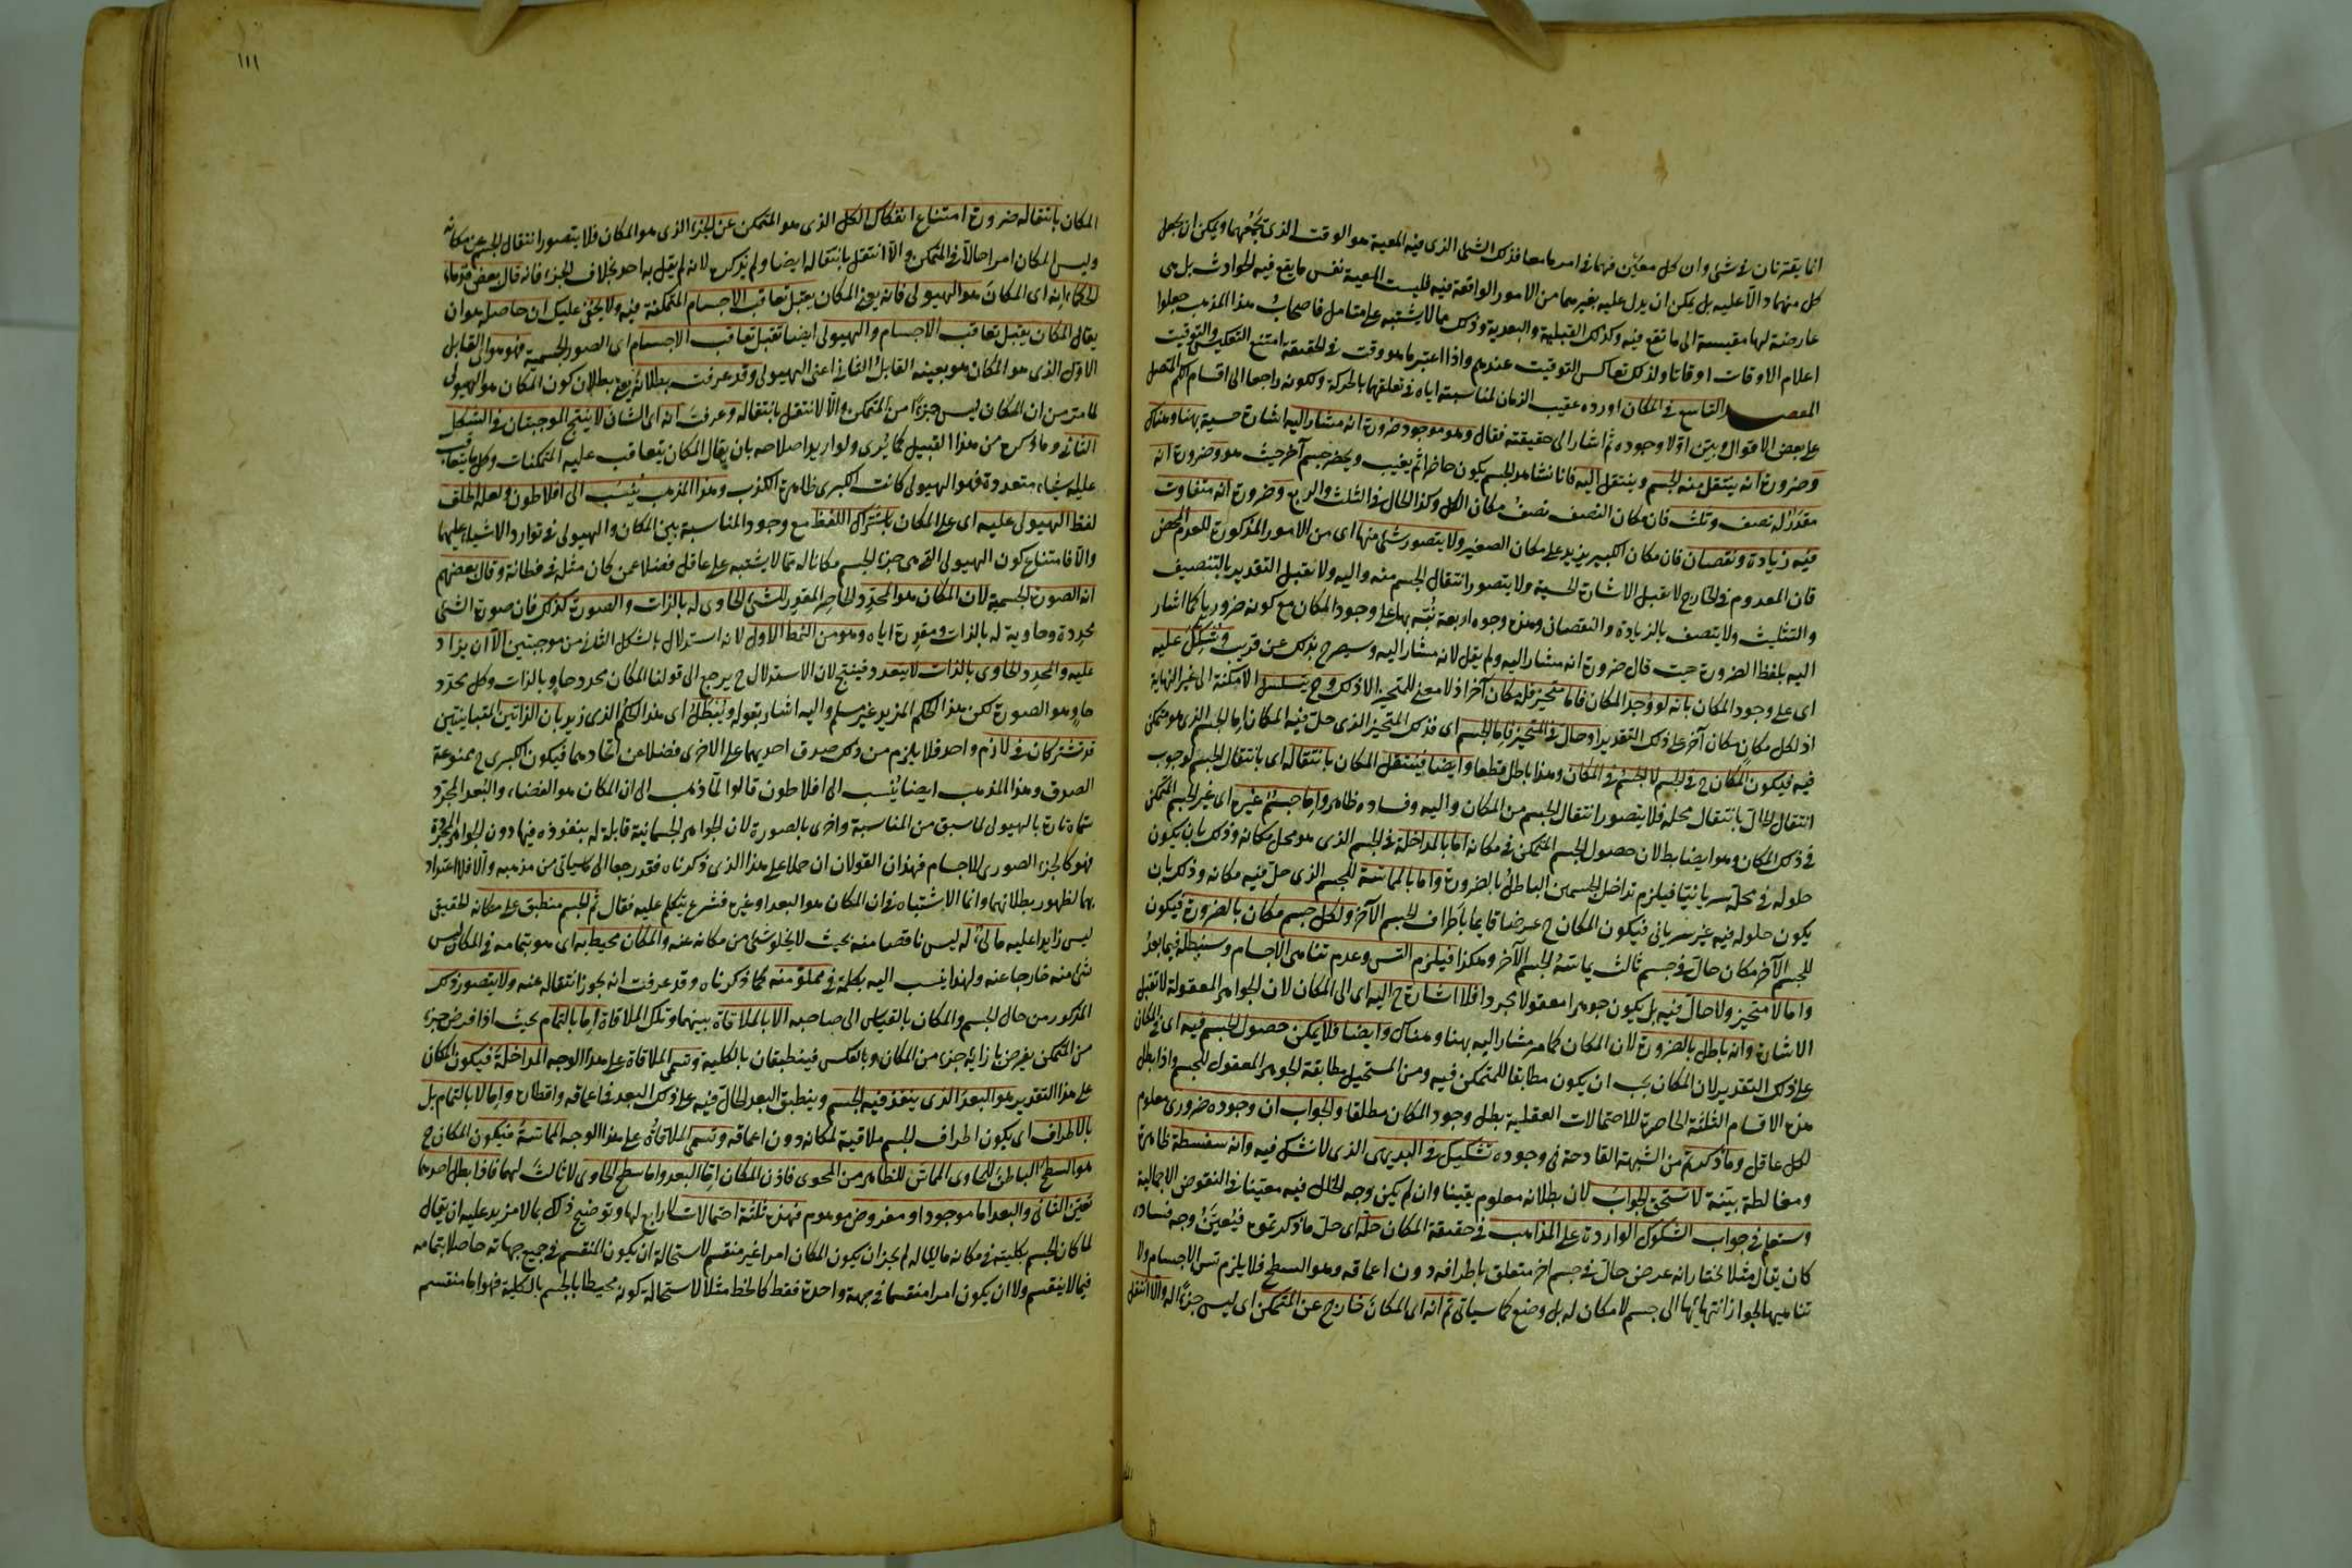 انما يقترنان في شئ وان كل معيّن فهما في امر ما معا فذلك الشئ الذى فيه المعية هو الوقت الذى يجمعهما ويمكن ان يجعل
كل منهما دالا عليه بل يمكن ان يدل عليه بغيرهما من الامور الواقعة فيه فليست المعية نفس ما يقع فيه الحوادث بل هى
عارضة لها مقيسة الى ما تقع فيه وكذلك القبلية والبعدية وذلك مما لا يشتبه على متأمل فاصحاب هذا المذهب جعلوا
اعلام الاوقات اوقاتا ولذلك تعاكس التوقيت عندهم واذا اعتبر ما هو وقت في الحقيقة امتنع التعكيس في التوقيت
المقصد التاسع في المكان اورده عقيب الزمان لمناسبته اياه في تعلقهما بالحركة ولكونه راجعا الى اقسام الكم المتصل
على بعض الاقوال وبين اولا وجوده ثم اشار الى حقيقته فقال وهو موجود ضرورة انه مشار اليه اشارة حسية بهنا وهناك
وضرورة انه ينتقل منه الجسم وينتقل اليه فانا نشاهد الجسم يكون حاضرا ثم يغيب ويحضر جسم آخر حيث هو وضرورة انه
مقدر له نصف وثلث فان مكان النصف نصف مكان الكل وكذا الحال في الثلث والربع وضرورة انه متفاوت
فيه زيادة ونقصان فان مكان الكبير يزيد على مكان الصغير ولا يتصور شئ منها اى من الامور المذكورة للعدم المحض
فان المعدوم في الخارج لا يقبل الاشارة الحسية ولا يتصور انتقال الجسم منه واليه ولا يقبل التقدير بالتنصيف
والتثليث ولا يتصف بالزيادة والنقصان وهذه وجوه اربعة نُبّه بها على وجود المكان مع كونه ضروريا كما اشار
اليه بلفظ الضرورة حيث قال ضرورة انه مشار اليه ولم يقل لانه مشار اليه وسيصرح بذلك عن قريب وشُكّك عليه
اى على وجود المكان بانه لو وجد المكان فاما متحيز فله مكان آخر اذ لا معنى للمتحيز الا ذلك وح يتسلسل الامكنة الى غير النهاية
اذ لكل مكان مكان آخر على ذلك التقدير او حال في المتحيز فاما الجسم اى فذلك المتحيز الذى حل فيه المكان اما الجسم الذى هو متمكن
فيه فيكون المكان ح في الجسم لا الجسم في المكان وهذا باطل قطعا وايضا فينتقل المكان بانتقاله اى بانتقال الجسم لوجوب
انتقال الحال بانتقال محله فلا يتصور انتقال الجسم من المكان واليه وفساده ظاهر واما جسم غيره اى غير الجسم المتمكن
في ذلك المكان وهو ايضا بط لان حصول الجسم المتمكن في مكانه اما بالمداخلة في الجسم الذى هو محل مكانه وذلك بان يكون
حلوله في محله سريانيا فيلزم تداخل الجسمين الباطل بالضرورة واما بالمماسة للجسم الذى حل فيه مكانه وذلك بان
يكون حلوله فيه غير سريانى فيكون المكان ح عرضا قايما باطراف الجسم الآخر ولكل جسم مكان بالضرورة فيكون
للجسم الآخر مكان حال في جسم ثالث يماسه الجسم الآخر وهكذا فيلزم التس وعدم تناهى الاجسام وسنبطله فيما بعد
واما لا متحيز ولا حال فيه بل يكون جوهرا معقولا مجردا فلا اشارة ح اليه اى الى المكان لان الجواهر المعقولة لا تقبل
الاشارة وانه باطل بالضرورة لان المكان كما مر مشار اليه بهنا وهناك وايضا فلا يمكن حصول الجسم فيه اى في المكان
على ذلك التقدير لان المكان يجب ان يكون مطابقا للمتمكن فيه ومن المستحيل مطابقة الجوهر المعقول للجسم واذا بطل
هذه الاقسام الثلثة الحاصرة للاحتمالات العقلية بطل وجود المكان مطلقا والجواب ان وجوده ضرورى معلوم
لكل عاقل وما ذكرتم من الشبهة القادحة في وجوده تشكيك في البديهى الذى لا شك فيه وانه سفسطة ظاهرة
ومغالطة بينة لا تستحق الجواب لان بطلانه معلوم يقينا وان لم يكن وجه الخلل فيه معينا في النقوض الاجمالية
وستعلم في جواب الشكوك الواردة على المذاهب في حقيقة المكان حله اى حل ما ذكرتموه فيتعين وجه فساده
كان يقال مثلا نختار انه عرض حال في جسم اخر متعلق باطرافه دون اعماقه وهو السطح فلا يلزم تس الاجسام ولا
تناهيها لجواز انتهائها الى جسم لا مكان له بل وضع كما سياتى ثم انه اى المكان خارج عن المتمكن اى ليس جزءا له والا انتقل
١١١
المكان بانتقاله ضرورة امتناع انفكاك الكل الذى هو المتمكن عن الجزء الذى هو المكان فلا يتصور انتقال الجسم عن مكانه
وليس المكان امرا حالا في المتمكن والا انتقل بانتقاله ايضا ولم يذكره لانه لم يقل به احد بخلاف الجزء فانه قال بعض قدماء
الحكماء انه اى المكان هو الهيولى فانه يعنى المكان يقبل تعاقب الاجسام المتمكنة فيه ولا يخفى عليك ان حاصله هو ان
يقال المكان يقبل تعاقب الاجسام والهيولى ايضا تقبل تعاقب الاجسام اى الصور الجسمية فهو هو اى القابل
الاول الذى هو المكان هو بعينه القابل الثانى اعنى الهيولى وقد عرفت بطلانه يعنى بطلان كون المكان هو الهيولى
لما مر من ان المكان ليس جزءا من المتمكن والا لانتقل بانتقاله وعرفت انه اى الشان لا ينتج الموجبتان في الشكل
الثانى وما ذكره من هذا القبيل كما يُرى ولو اريد اصلاحه بان يقال المكان يتعاقب عليه المتمكنات وكل ما يتعاقب
عليه اشياء متعددة فهو الهيولى كانت الكبرى ظاهرة الكذب وهذا المذهب ينسب الى افلاطون ولعله اطلق
لفظ الهيولى عليه اى على المكان باشتراك اللفظ مع وجود المناسبة بين المكان والهيولى في توارد الاشياء عليهما
والا فامتناع كون الهيولى التى هى جزء الجسم مكانا له مما لا يشتبه على عاقل فضلا عمن كان مثله في فطانة وقال بعضهم
انه الصورة الجسمية لان المكان هو المحدد الحاصر المقدر للشئ الحاوى له بالذات والصورة كذلك فان صورة الشئ
محددة وحاوية له بالذات ومقدرة اياه وهو من النمط الاول لانه استدلال بالشكل الثانى من موجبتين الا ان يزاد
عليه والمحدد الحاوى بالذات لا يتعدد فينتج لان الاستدلال ح يرجع الى قولنا المكان محدد حاو بالذات وكل محدد
حاو هو الصورة لكن هذا الحكم المزيد غير مسلم واليه اشار بقوله ويبطله اى هذا الحكم الذى زيد بان الذاتين المتباينتين
قد تشتركان في لازم واحد فلا يلزم من ذلك صدق احديهما على الاخرى فضلا عن اتحادهما فيكون الكبرى ح ممنوعة
الصدق وهذا المذهب ايضا ينسب الى افلاطون قالوا لما ذهب الى ان المكان هو الفضاء والبعد المجرد
سماه تارة بالهيولى لما سبق من المناسبة واخرى بالصورة لان الجواهر الجسمانية قابلة له بنفوذه فيها دون الجواهر المجردة
فهو كالجزء الصورى للاجسام فهذان القولان ان حملا على هذا الذى ذكرناه فقد رجعا الى ما سياتى من مذهبه والا فلا اعتداد
بهما لظهور بطلانهما وانما الاشتباه في ان المكان هو البعد او غيره فشرع يتكلم عليه فقال ثم الجسم منطبق على مكانه الحقيقى
ليس زايدا عليه مالئ له ليس ناقصا منه بحيث لا يخلو شئ من مكانه عنه والمكان محيط به اى هو بتمامه في المكان ليس
شئ منه خارجا عنه ولهذا ينسب اليه بكلمة في مملو منه كما ذكرناه وقد عرفت انه يجوز انتقاله عنه ولا يتصور ذلك
المذكور من حال الجسم والمكان بالقياس الى صاحبه الا بالملاقاة بينهما وتلك الملاقاة اما بالتمام بحيث اذا فرض جزء
من المتمكن يفرض بازائه جزء من المكان وبالعكس فينطبقان بالكلية وتسمى الملاقاة على هذا الوجه المداخلة فيكون المكان
على هذا التقدير هو البعد الذى ينفذ فيه الجسم وينطبق البعد الحال فيه على ذلك البعد في اعماقه واقطاره واما لا بالتمام بل
بالاطراف اى يكون اطراف الجسم ملاقية لمكانه دون اعماقه وتسمى الملاقاة على هذا الوجه المماسة فيكون المكان ح
هو السطح الباطن للحاوى المماس للظاهر من المحوى فاذن المكان اما البعد واما سطح الحاوى لا ثالث لهما فاذا بطل احدهما
تعين الثانى والبعد اما موجود او مفروض موهوم فهذه ثلثة احتمالات لا رابع لها وتوضيح ذلك بما لا مزيد عليه ان يقال
لما كان الجسم بكليته في مكانه مالئا له لم يجز ان يكون المكان امرا غير منقسم لاستحالة ان يكون المنقسم في جميع جهاته حاصلا بتمامه
فيما لا ينقسم ولا ان يكون امرا منقسما في جهة واحدة فقط كالخط مثلا لاستحالة كونه محيطا بالجسم بالكلية فهو اما منقسم